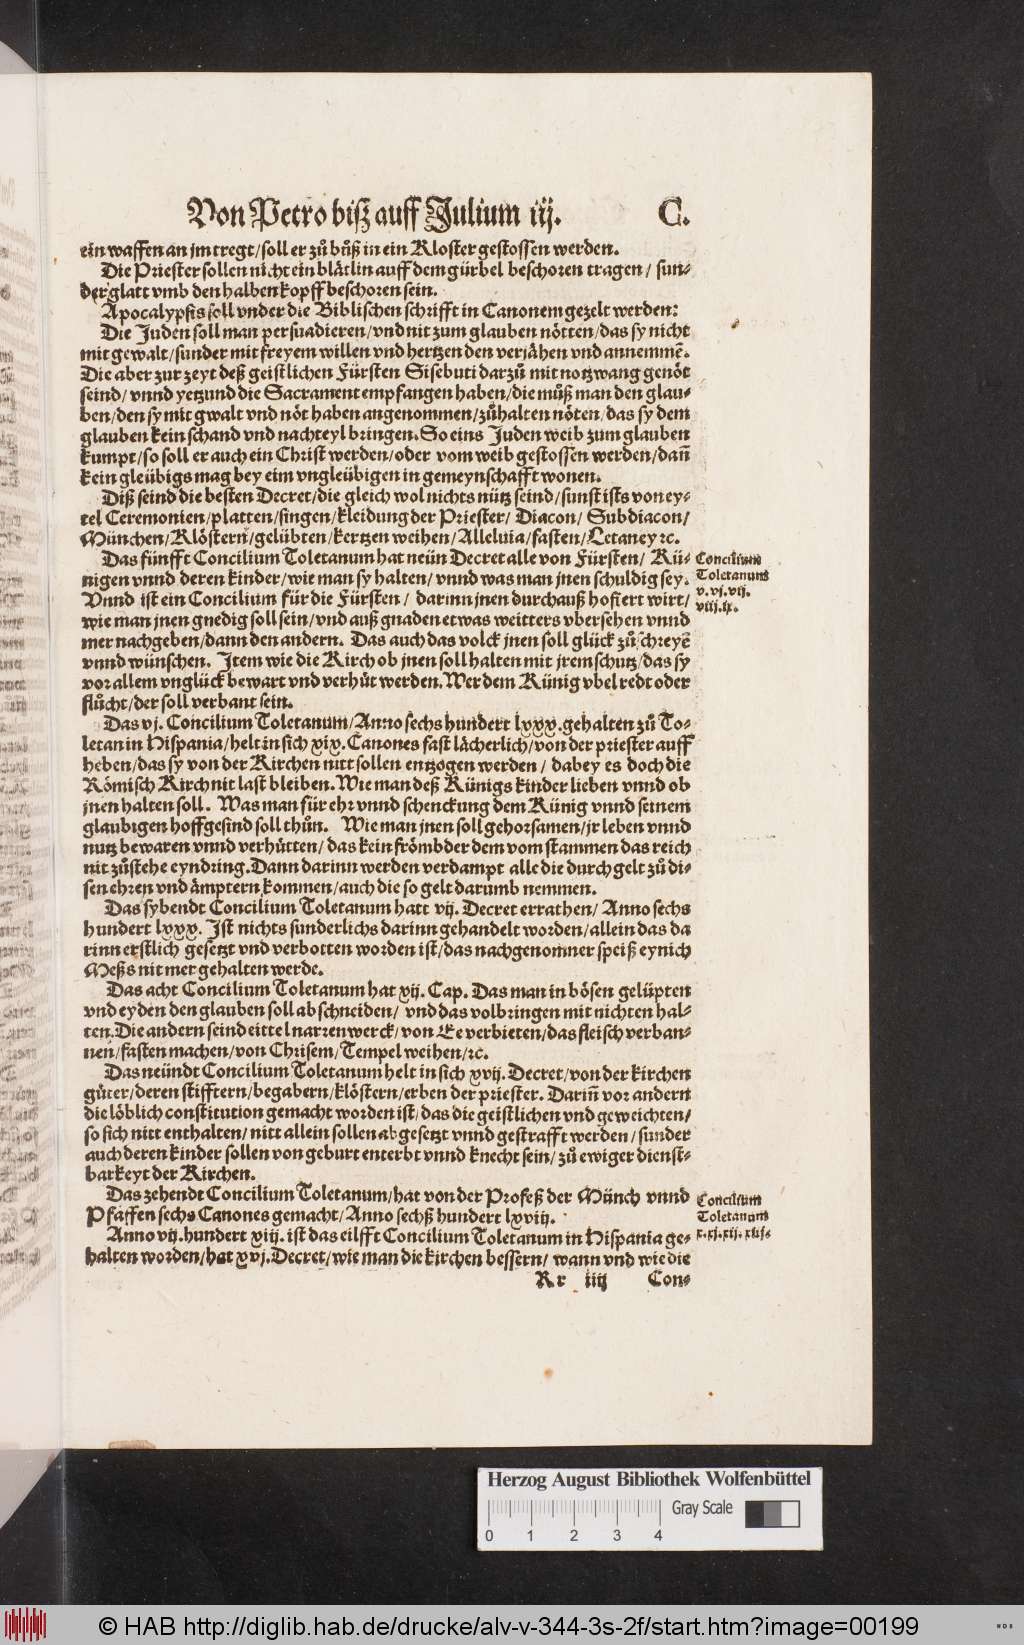 Von Petro biß auff Julium iij. C.
ein waffen an jm tregt/soll er zů bůß in ein Kloster gestossen werden.
Die Priester sollen nicht ein blätlin auff dem gürbel beschoren tragen/ sun-
der glatt vmb den halben kopff beschoren sein.
Apocalypsis soll vnder die Biblischen schrifft in Canonem gezelt werden:
Die Juden soll man persuadieren/vnd nit zum glauben nötten/das sy nicht
mit gewalt/sunder mit freyem willen vnd hertzen den verjähen vnd annemmē.
Die aber zur zeyt deß geistlichen Fürsten Sisebuti darzů mit notzwang genöt
seind/ vnnd yetzund die Sacrament empfangen haben/die můß man den glau-
ben/den sy mit gwalt vnd nöt haben angenommen/zůhalten nöten/das sy dem
glauben kein schand vnd nachteyl bringen. So eins Juden weib zum glauben
kumpt/so soll er auch ein Christ werden/oder vom weib gestossen werden/dañ
kein gleübigs mag bey eim vngleübigen in gemeynschafft wonen.
Diß seind die besten Decret/die gleich wol nichts nütz seind/sunst ists von ey-
tel Ceremonien/platten/singen/kleidung der Priester/ Diacon/ Subdiacon/
München/Klöstern/gelübten/kertzen weihen/Alleluia/fasten/Letaney ꝛc.
Das fünfft Concilium Toletanum hat neün Decret alle von Fürsten/ Kü-
nigen vnnd deren kinder/wie man sy halten/vnnd was man jnen schuldig sey.
Vnnd ist ein Concilium für die Fürsten/ darinn jnen durchauß hofiert wirt/
wie man jnen gnedig soll sein/vnd auß gnaden etwas weitters vbersehen vnnd
mer nachgeben/dann den andern. Das auch das volck jnen soll glück zů schreyē
vnnd wünschen. Jtem wie die Kirch ob jnen soll halten mit jrem schutz/das sy
vor allem vnglück bewart vnd verhüt werden. Wer dem Künig vbel redt oder
flůcht/der soll verbant sein.
Das vj. Concilium Toletanum/Anno sechs hundert lxxx. gehalten zů To-
letan in Hispania/helt in sich xix. Canones fast lächerlich/von der priester auff
heben/das sy von der Kirchen nitt sollen entzogen werden/ dabey es doch die
Römisch Kirch nit last bleiben. Wie man deß Künigs kinder lieben vnnd ob
jnen halten soll. Was man für ehr vnnd schenckung dem Künig vnnd seinem
glaubigen hoffgesind soll thůn. Wie man jnen soll gehorsamen/jr leben vnnd
nutz bewaren vnnd verhütten/das kein frömbder dem vom stammen das reich
nit zůstehe eyndring. Dann darinn werden verdampt alle die durch gelt zů di-
sen ehren vnd ämptern kommen/auch die so gelt darumb nemmen.
Das sybendt Concilium Toletanum hatt vij. Decret errathen/ Anno sechs
hundert lxxx. Jst nichts sunderlichs darinn gehandelt worden/allein das da
rinn erstlich gesetzt vnd verbotten worden ist/das nach genomner speiß eynich
Meßs nit mer gehalten werde.
Das acht Concilium Toletanum hat xij. Cap. Das man in bösen gelüpten
vnd eyden den glauben soll abschneiden/ vnd das volbringen mit nichten hal-
ten. Die andern seind eittel narrenwerck/von Ee verbieten/das fleisch verban-
nen/fasten machen/von Chrisem/Tempel weihen/ꝛc.
Das neündt Concilium Toletanum helt in sich xvij. Decret/von der kirchen
güter/deren stifftern/begabern/klöstern/erben der priester. Dariñ vor andern
die löblich constitution gemacht worden ist/das die geistlichen vnd geweichten/
so sich nitt enthalten/nitt allein sollen abgesetzt vnnd gestrafft werden/sunder
auch deren kinder sollen von geburt enterbt vnnd knecht sein/zů ewiger dienst-
barkeyt der Kirchen.
Das zehendt Concilium Toletanum/hat von der Profeß der Münch vnnd
Pfaffen sechs Canones gemacht/Anno sechß hundert lxviij.
Anno vij. hundert xiij. ist das eilfft Concilium Toletanum in Hispania ge-
halten worden/hat xvj. Decret/wie man die kirchen bessern/ wann vnd wie die
Rr iiij Con-
Concilium
Toletanum
v. vj. vij.
viij. ix.
Concilium
Toletanum
x. xj. xij. xiij.
Herzog August Bibliothek Wolfenbüttel
Gray Scale
0 1 2 3 4
© HAB http://diglib.hab.de/drucke/alv-v-344-3s-2f/start.htm?image=00199